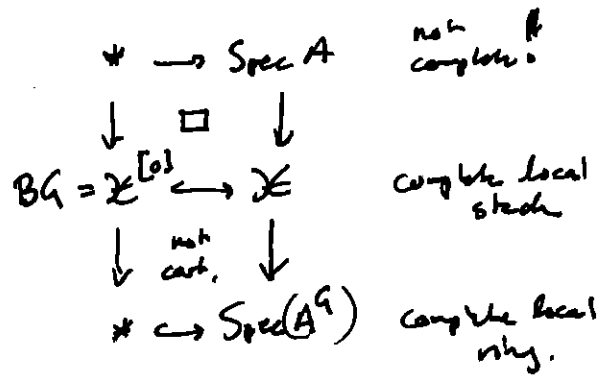 * → Spec A not complete!
↓ □ ↓
BG = 𝒳^[0] ↪ 𝒳 complete local stack
↓ not cart. ↓
* ↪ Spec(A^G) complete local ring.